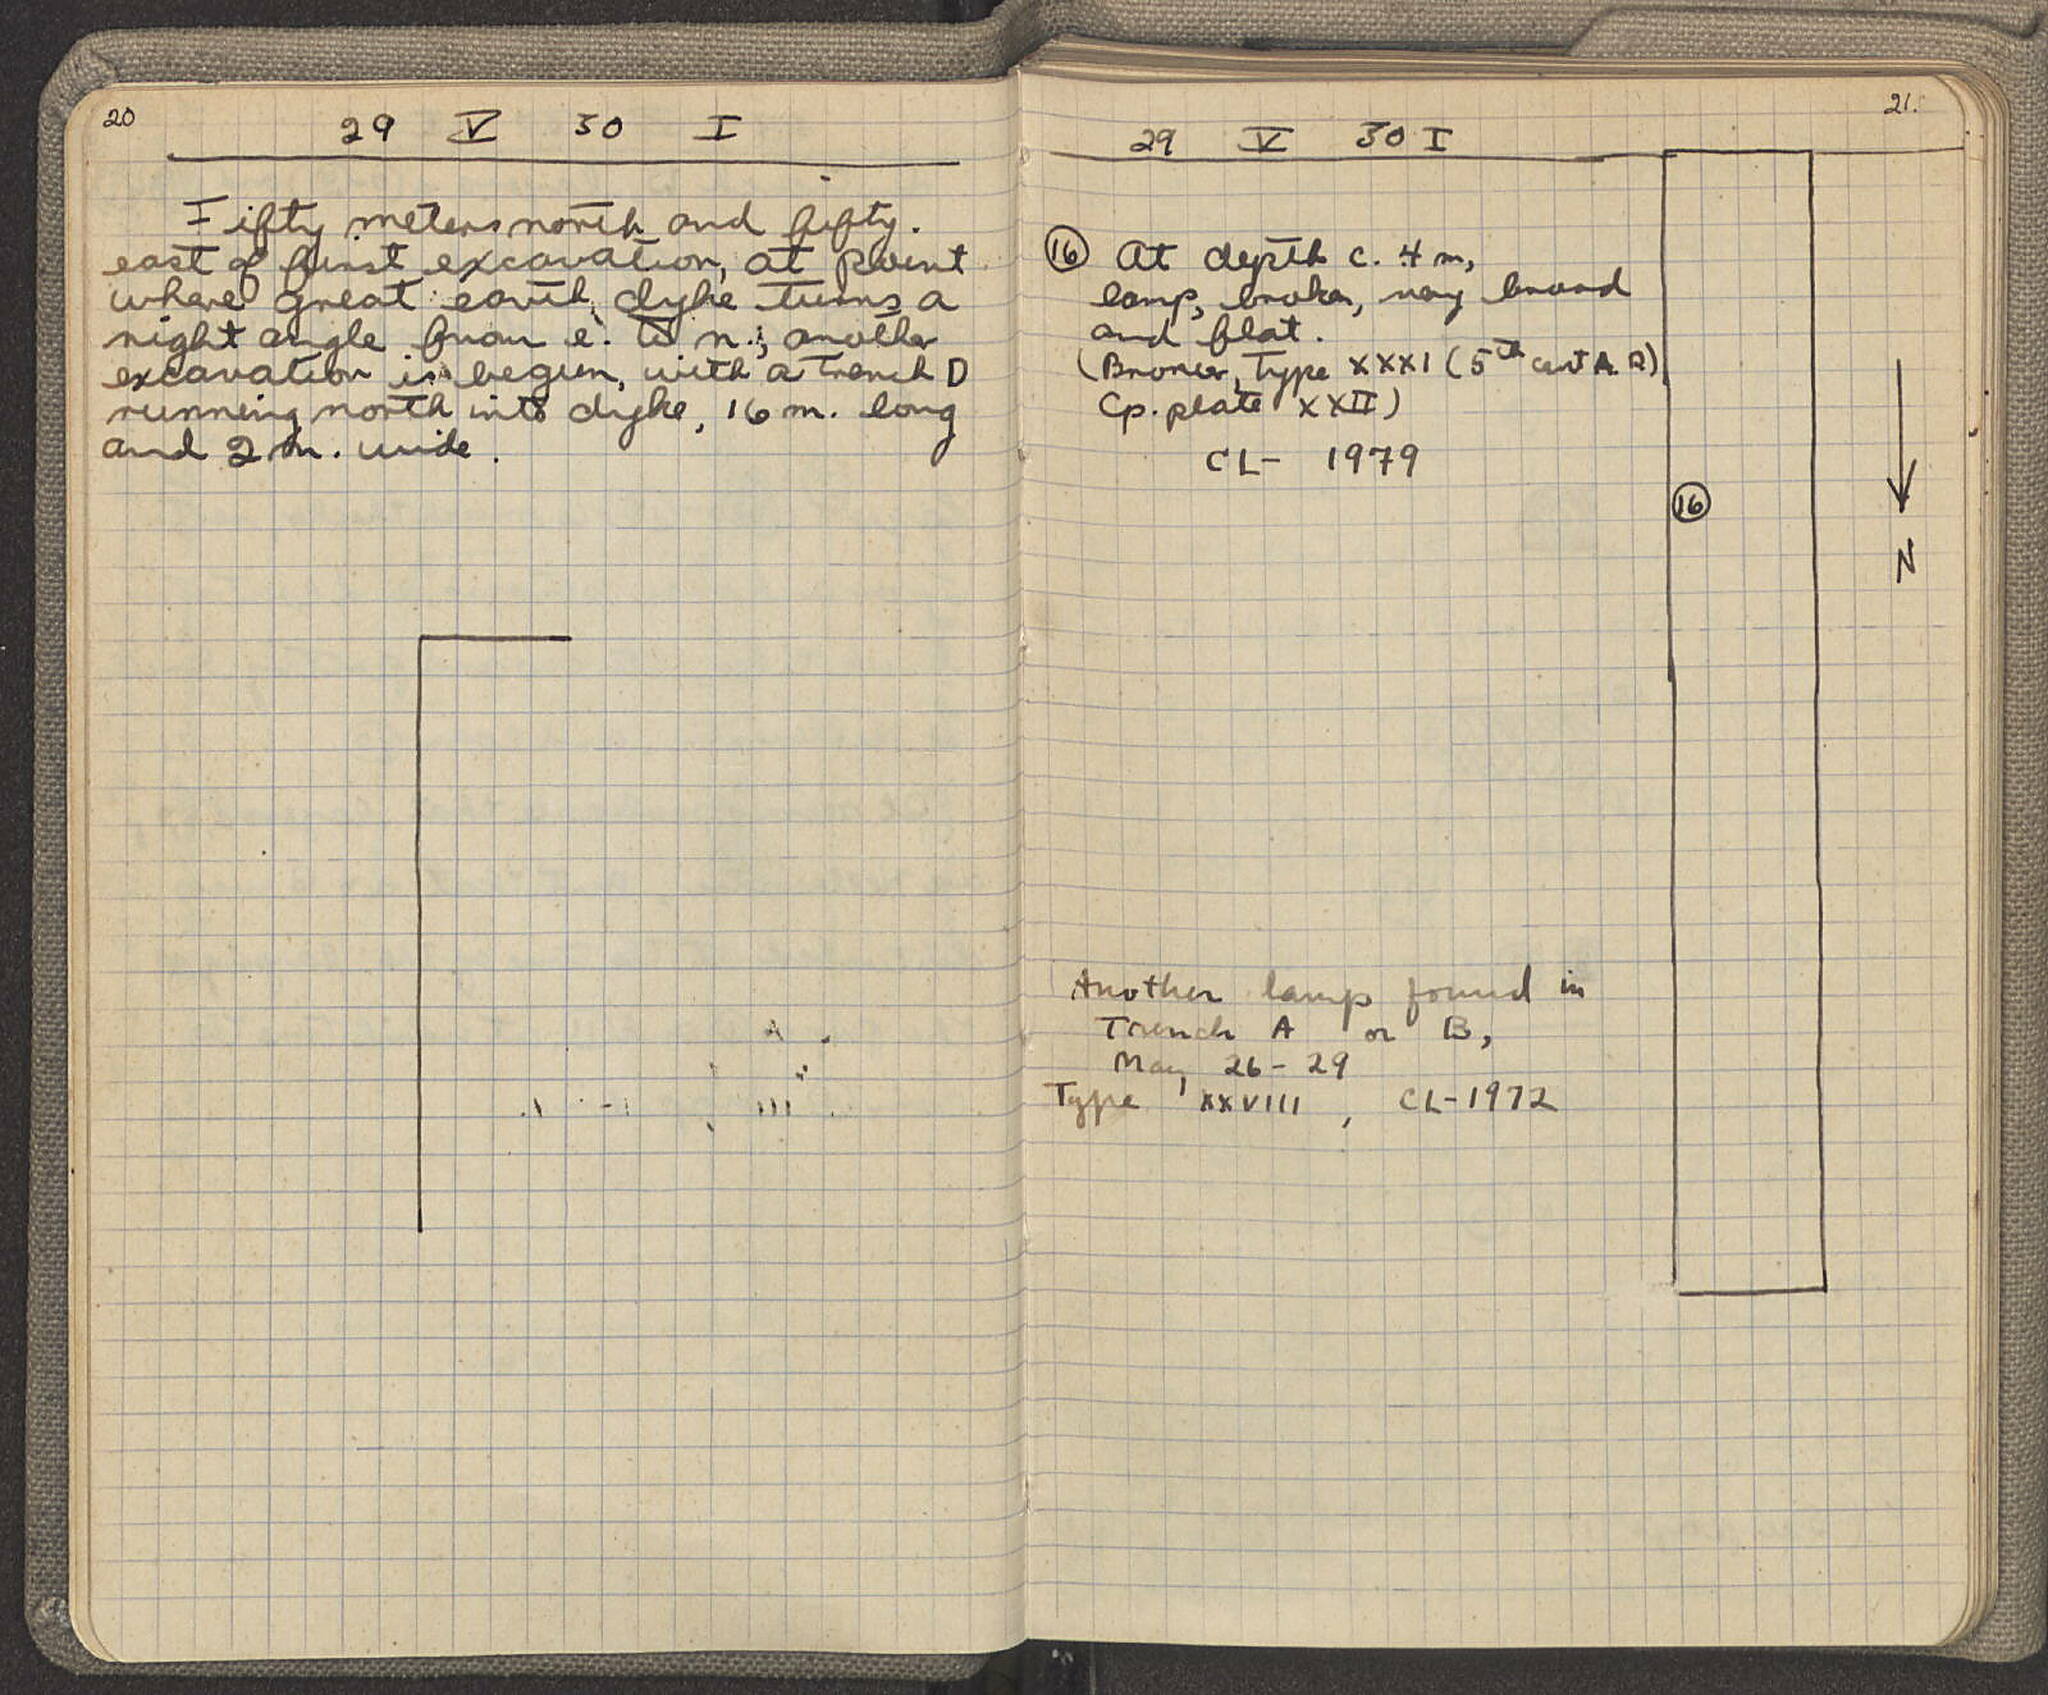 20
29 V 30 I
Fifty meters north and fifty
east of first excavation, at point
where great earth dyke turns a
right angle from e. to n., another
excavation is begun, with a Trench D
running north into dyke, 16 m. long
and 2 m. wide.
21.
29 V 30 I
16 At depth c. 4 m,
lamp, broken, very broad
and flat.
(Broneer, Type XXXI (5th cent A.D.)
Cp. plate XXII)
CL- 1979
16
N
Another lamp found in
Trench A or B,
May 26-29
Type XXVIII, CL-1972